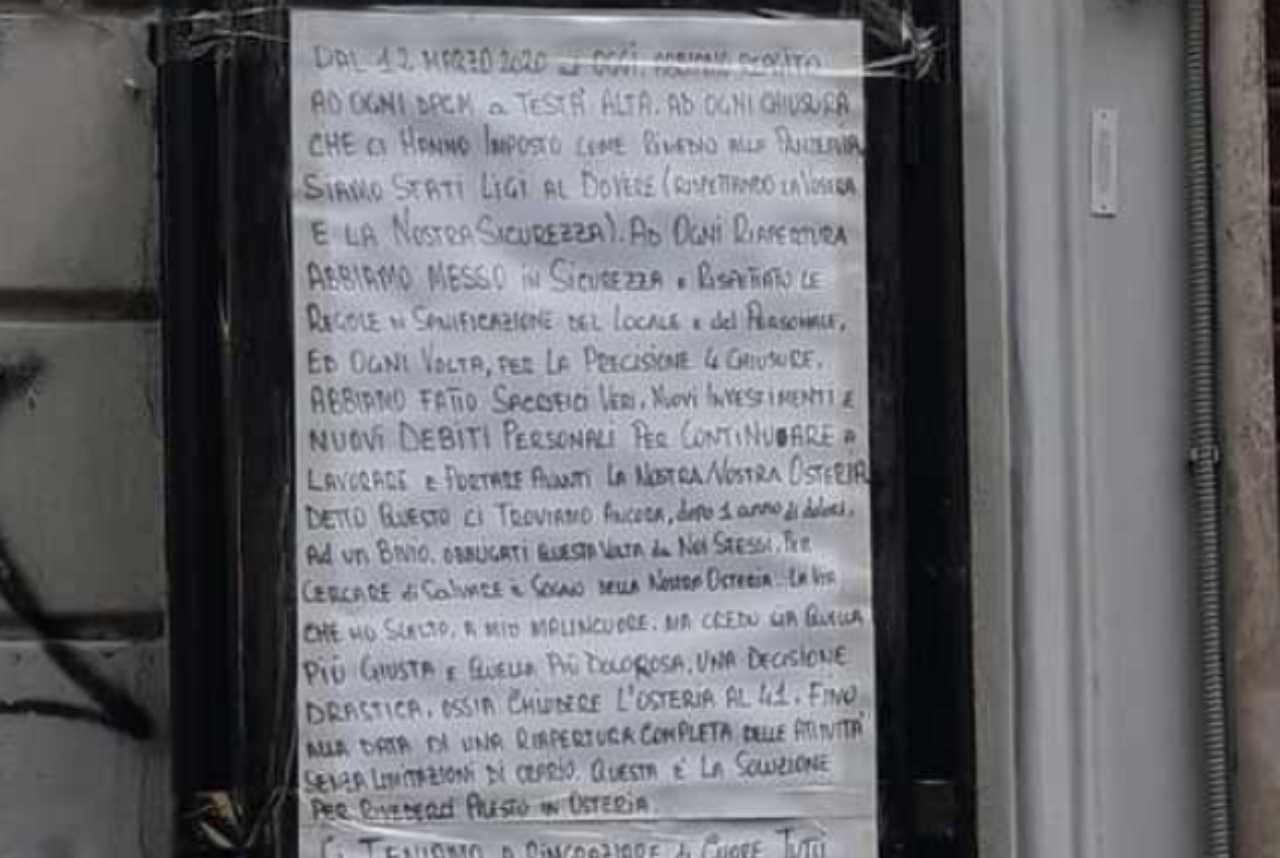 DAL 12 MARZO 2020 ad OGGI, ABBIAMO REAGITO
AD OGNI DPCM a TESTA ALTA. AD OGNI CHIUSURA
CHE CI HANNO IMPOSTO COME RIMEDIO ALLA PANDEMIA
SIAMO STATI LIGI AL DOVERE (RISPETTANDO LA VOSTRA
E LA NOSTRA SICUREZZA). AD OGNI RIAPERTURA
ABBIAMO MESSO in SICUREZZA e RISPETTATO LE
REGOLE di SANIFICAZIONE DEL LOCALE e del PERSONALE,
ED OGNI VOLTA, PER LA PRECISIONE 4 CHIUSURE,
ABBIAMO FATTO SACRIFICI VERI, NUOVI INVESTIMENTI E
NUOVI DEBITI PERSONALI PER CONTINUARE a
LAVORARE e PORTARE AVANTI LA NOSTRA NOSTRA OSTERIA
DETTO QUESTO CI TROVIAMO ANCORA, dopo 1 anno di dolori,
Ad un BIVIO, OBBLIGATI QUESTA VOLTA da NOI STESSI, PER
CERCARE di SALVARE il SOGNO DELLA NOSTRA OSTERIA. LA VIA
CHE HO SCELTO, A MIO MALINCUORE, MA CREDO SIA QUELLA
PIÙ GIUSTA e QUELLA PIÙ DOLOROSA, UNA DECISIONE
DRASTICA, OSSIA CHIUDERE L'OSTERIA AL 41, FINO
ALLA DATA DI UNA RIAPERTURA COMPLETA DELLE ATTIVITÀ
SENZA LIMITAZIONI DI ORARIO. QUESTA È LA SOLUZIONE
PER RIVEDERCI PRESTO IN OSTERIA.
CI TENIAMO A RINGRAZIARE di CUORE TUTTI